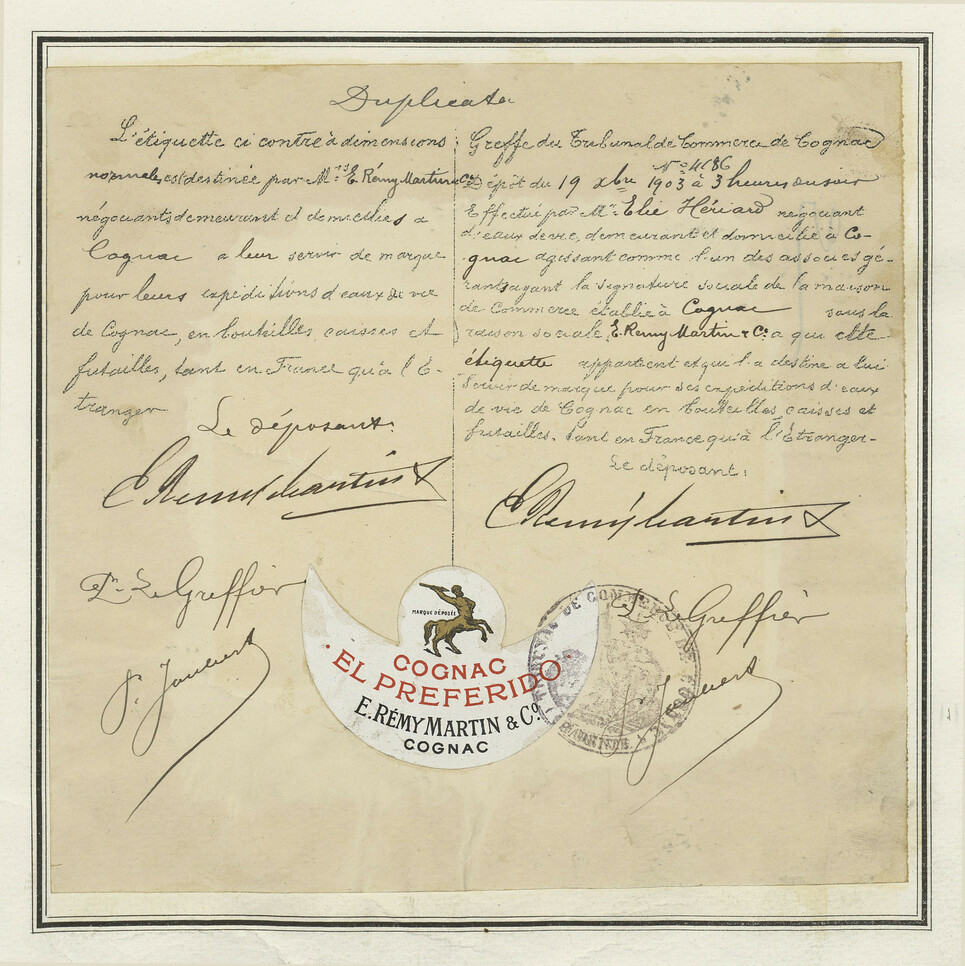 Duplicata
L'étiquette ci contre à dimensions
normales est destinée par M.rs E. Rémy Martin & Co.
négociants demeurant et domiciliés à
Cognac a leur servir de marque
pour leurs expéditions d'eaux de vie
de Cognac, en bouteilles caisses et
futailles, tant en France qu'à l'É-
tranger
Le déposant:
E Remy Martin &
Pr. Le Greffier
Greffe du Tribunal de Commerce de Cognac
No. 4686
Dépôt du 19 xbre 1903 à 3 heures du soir
Effectué par Mr. Elie Hériard négociant
d'eaux de vie, demeurant et domicilié à Co-
gnac agissant comme l'un des associés gé-
rants ayant la signature sociale de la maison
de Commerce établie à Cognac sous la
raison sociale E. Remy Martin & Co. a qui cette
étiquette appartient et qui l'a destine a lui
Servir de marque pour ses expéditions d'eaux
de vie de Cognac en bouteilles, caisses et
futailles. tant en France qu'à l'Étranger-
Le déposant:
E Remy Martin &
Le Greffier
MARQUE DÉPOSÉE
COGNAC
· EL PREFERIDO ·
E. RÉMY MARTIN & Co.
COGNAC
TRIBUNAL DE COMMERCE DE COGNAC